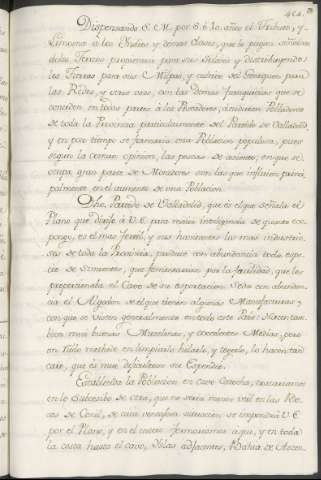 464.
Dispensando S. M. por 8. ó 10. años el tributo, y
Limosna á los Yndios y demas clases, que le pagan cañones
delos Terrenos proporcion para sus Solares y distribuyendo
les Tierras para sus Milpas, y
las Redes, y otros usos, con las demas franquicias que se
conceden en todas partes á los Pobladores, acudirian Pobladores
de toda la Provincia particularmente del Partido de Valladolid,
y en poco tiempo se formaria una Poblacion populosa, pues
segun la comun opinion, las pescas de en que se
ocupa gran parte de Moradores son las que influyen
palmente en el aumento de una Poblacion.
Dho. Partido de Valladolid, que es el que señala el
Plano que dirijo á V.E. para maior inteligencia de quanto ex-
pongo, es el mas fertil, y sus havitantes los mas industrio-
sos de toda la Provincia, produce con abundancia toda espe-
cie de Simientes, que fomentarian por la facilidad, que les
proporcionaba el Cavo de su exportacion. Se da con abundan-
cia el Algodon de el que tienen algunas Manufacturas,
con que se visten generalmente en todo este Pais: Hacen tam-
bien mui buenas Mantelerias, y excelentes Medias, pero
en limpiarlo hilarlo, y texerlo, lo hacen tan
caro, que es mui dificultoso su Expendio.
Establecida la Poblacion en Cavo Catoche, trataríamos
en lo Subcesibo de otra, que no seria menos util en las Bo-
cas de Conil, de cuia ventajosa situacion, se impondrá V.E.
por el Plano, y en el entre formaríamos aquí, y en toda
la costa hasta el cavo, Yslas adjacentes, Bahia de Ascen-